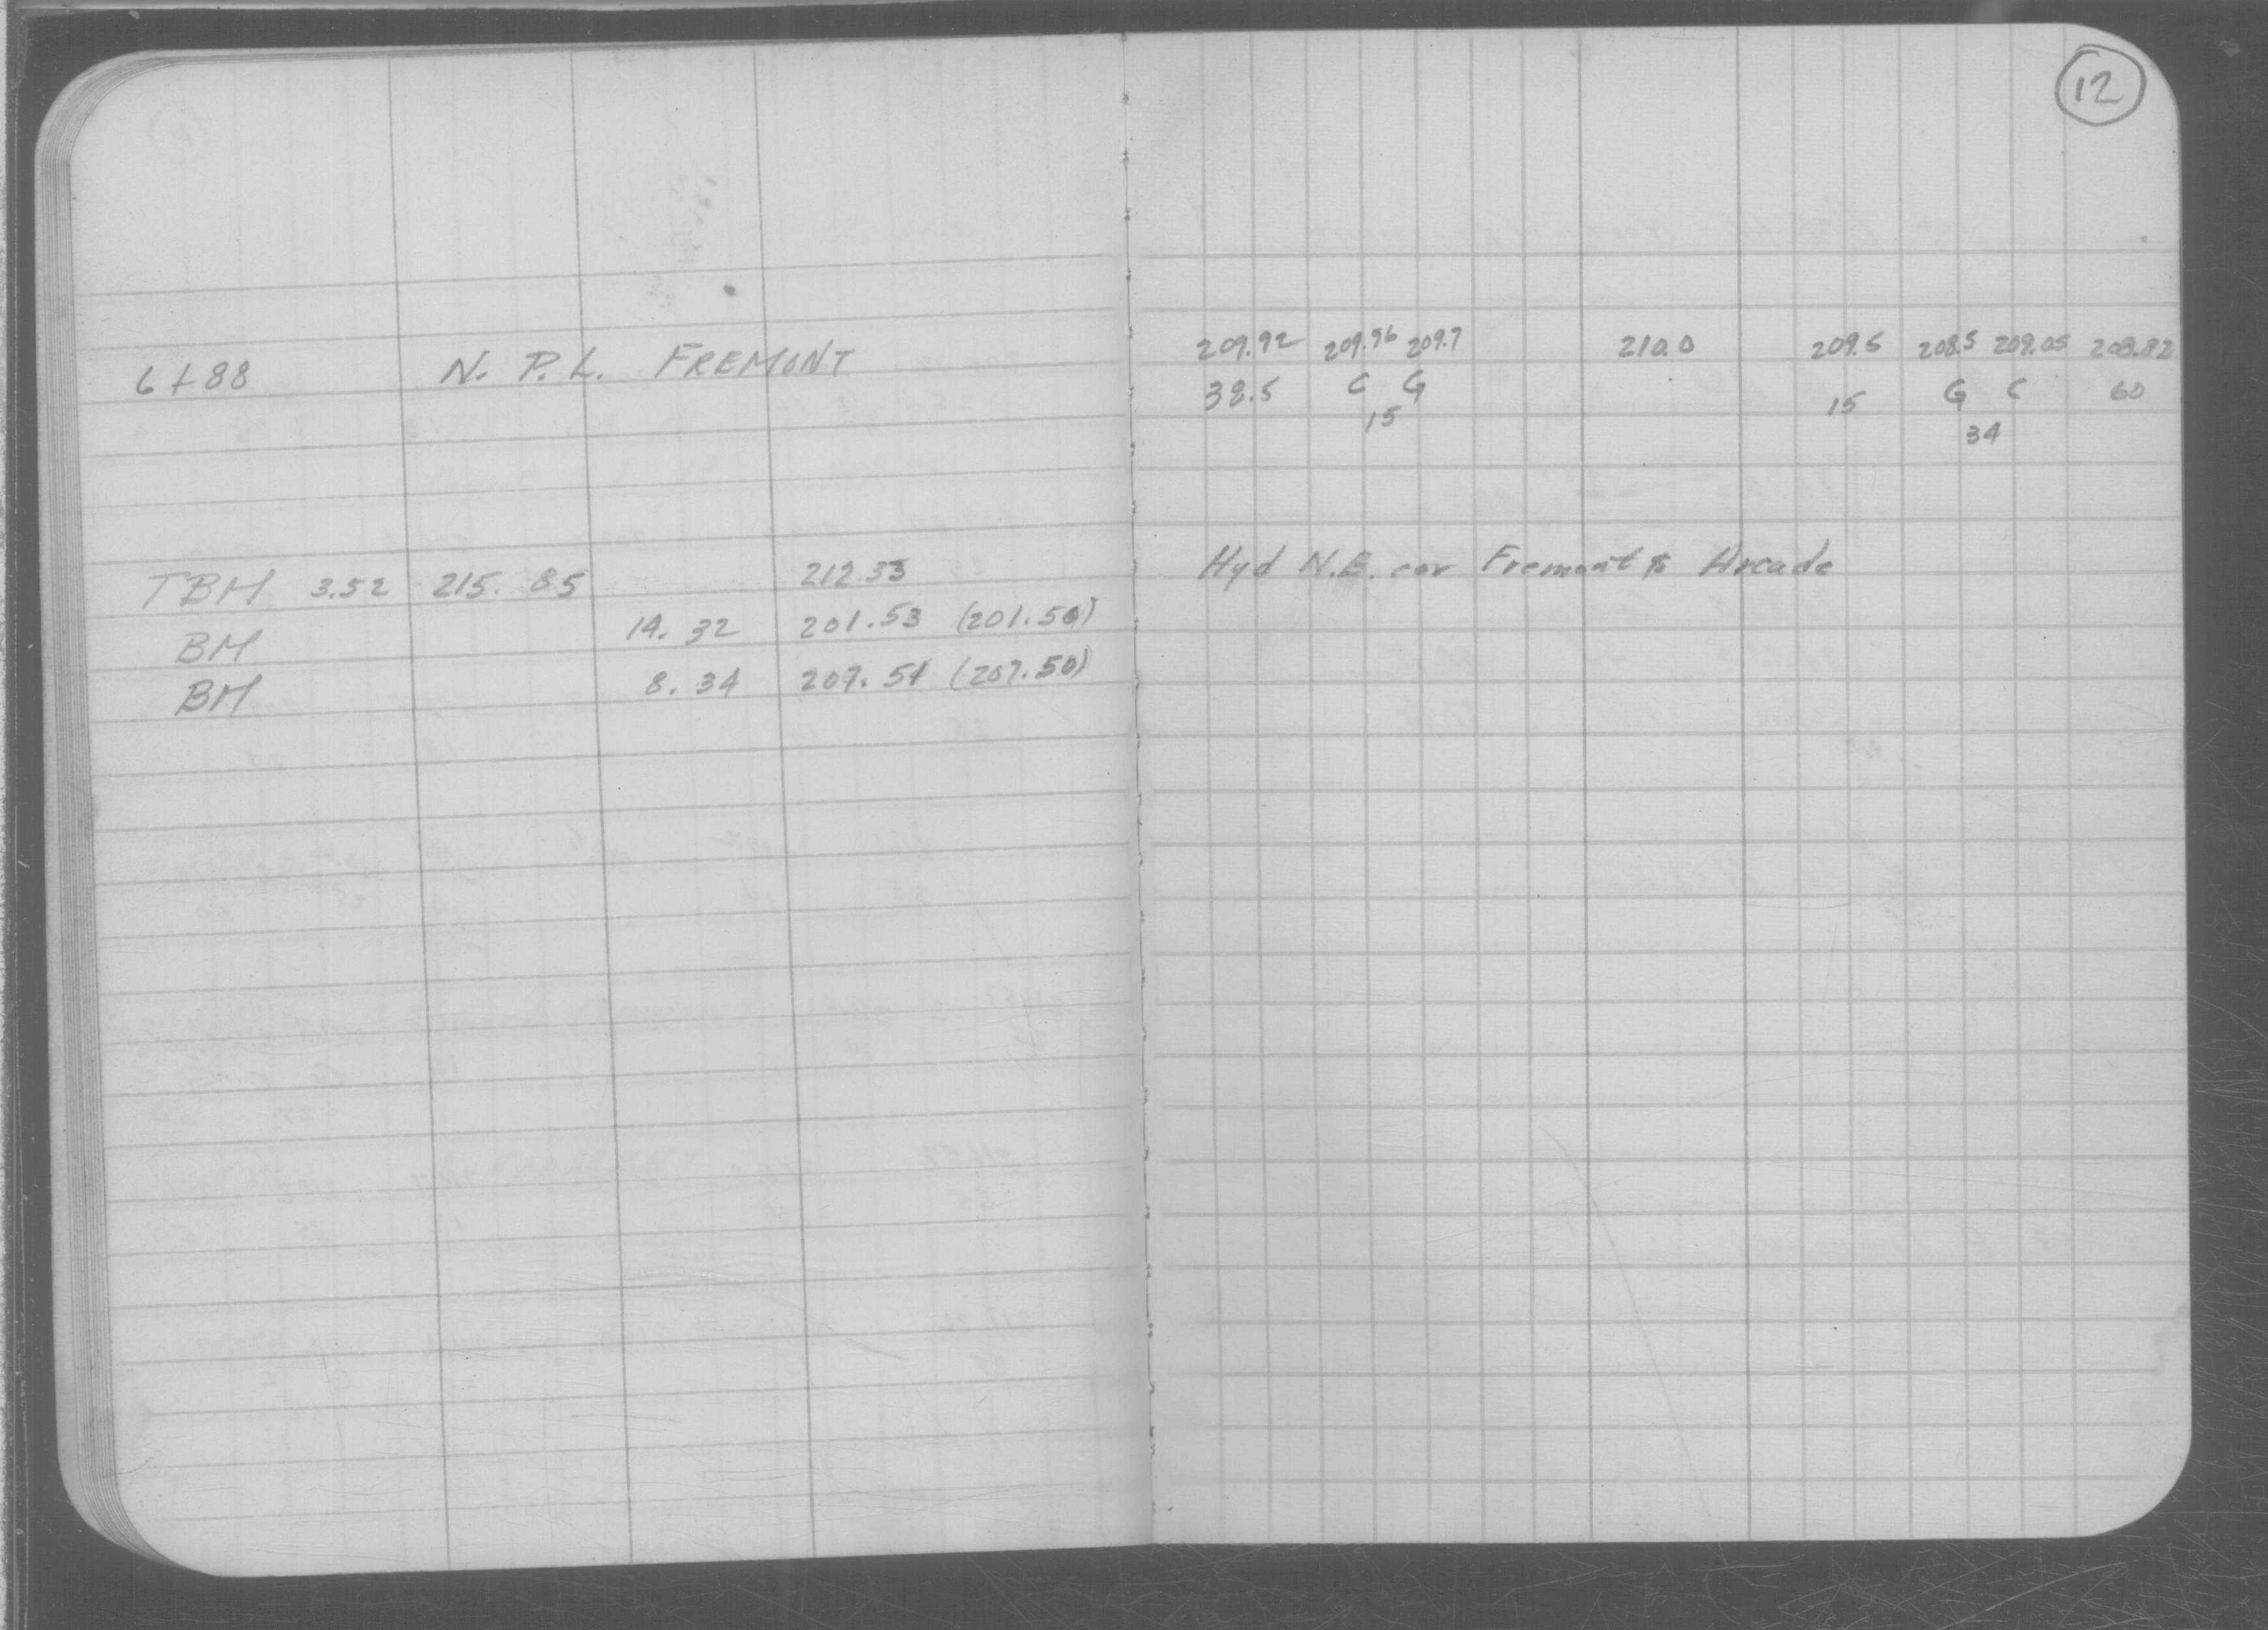 12
6+88 N. P. L. FREMONT
209.92 209.96 209.7 210.0 209.5 208.5 209.05 208.82
38.5 C G 15 G C 60
15 34
TBM 3.52 215.85 212.33 Hyd N.E. cor Fremont & Arcade
BM 14.32 201.53 (201.50)
BM 8.34 207.51 (207.50)